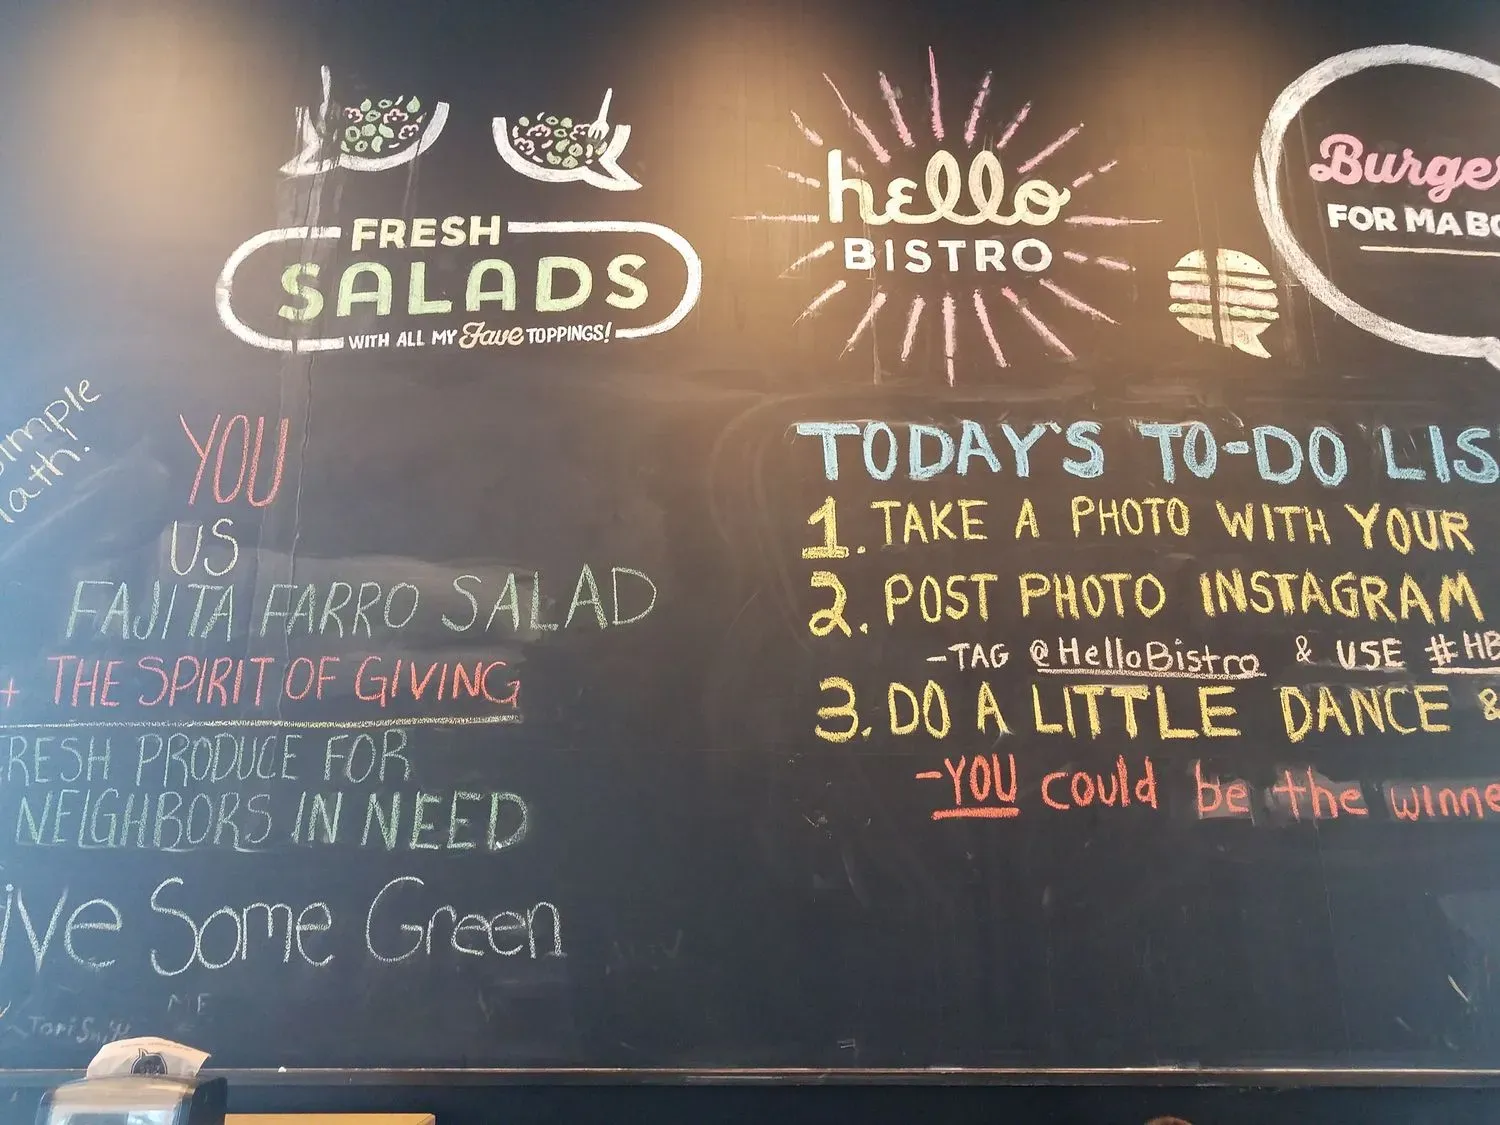 FRESH
SALADS
WITH ALL MY Fave TOPPINGS!
hello
BISTRO
Burge
FOR MA BO
simple
Math!
YOU
US
FAJITA FARRO SALAD
+ THE SPIRIT OF GIVING
RESH PRODUCE FOR
NEIGHBORS IN NEED
ive Some Green
ME
TODAY'S TO-DO LIS
1. TAKE A PHOTO WITH YOUR
2. POST PHOTO INSTAGRAM
-TAG @HelloBistro & USE #HB
3. DO A LITTLE DANCE &
-YOU could be the winne